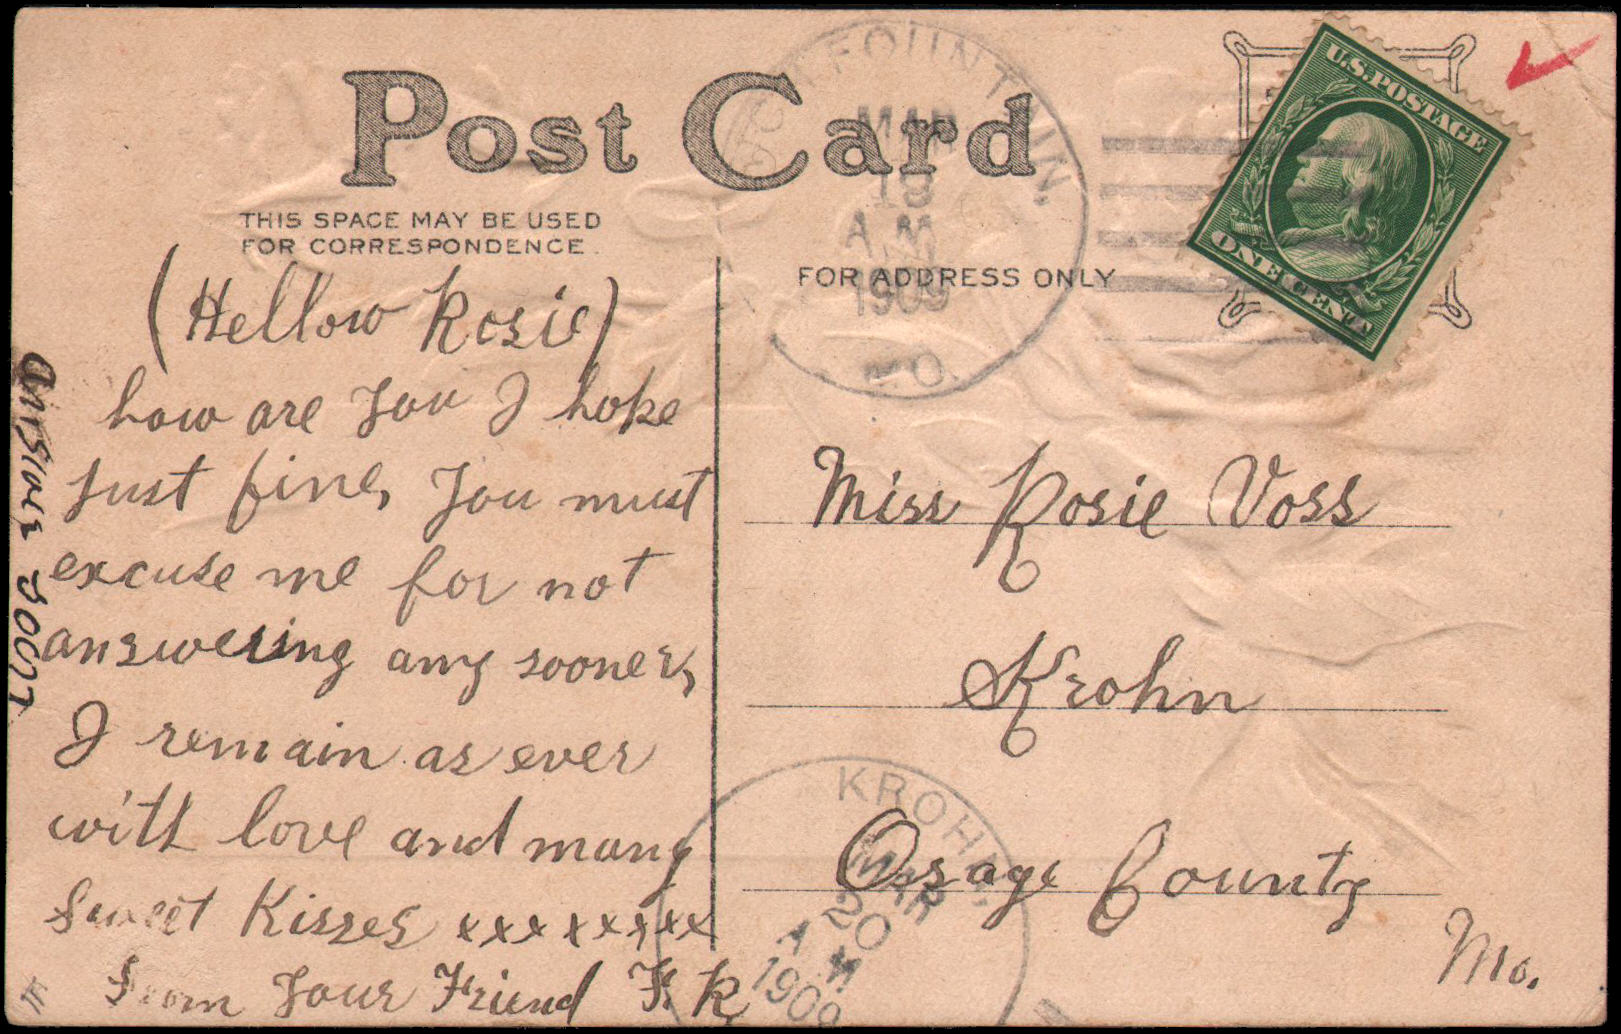 Post Card
THIS SPACE MAY BE USED
FOR CORRESPONDENCE.
FOR ADDRESS ONLY
FOUNTAIN,
MAR
19
A M
1909
MO.
U.S. POSTAGE
ONE CENT
(Hellow Rosie)
how are You I hope
Just fine, You must
excuse me for not
answering any sooner,
I remain as ever
with love and many
Sweet Kisses xxxxxxxx
From Your Friend F. K
answer soon
Miss Rosie Voss
Krohn
Osage County
Mo.
KROHN,
MAR
20
A M
1909
M